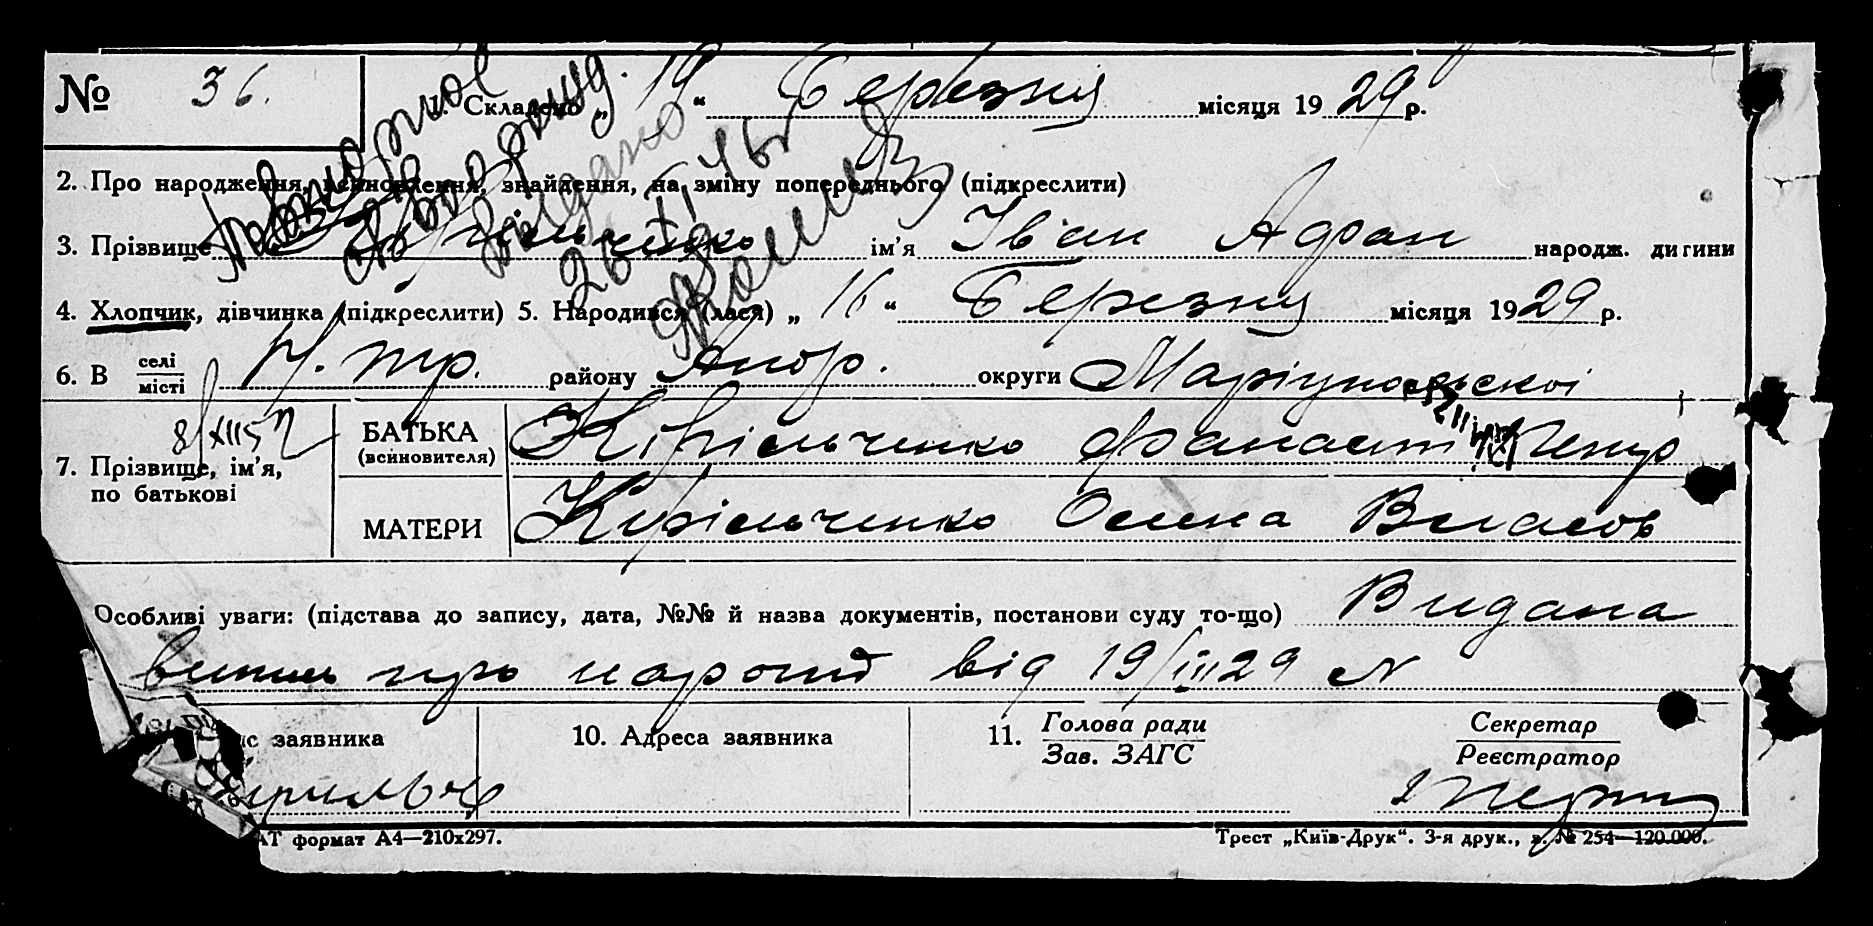 № 36.
1. Складено „ 19 “ Березня місяця 19 29 р.
2. Про народження, всиновлення, знайдення, на зміну попереднього (підкреслити)
3. Прізвище ім’я Іван Афан народж. дитини
4. Хлопчик, дівчинка (підкреслити) 5. Народився (лася) „ 16 “ Березня місяця 19 29 р.
6. В селі/місті району округи Маріупольскої
8/XII 57
7. Прізвище, ім’я, по батькові
БАТЬКА (всиновителя) Кірільченко Фанаст Петр
МАТЕРИ Кірільченко Олена Власов
Особливі уваги: (підстава до запису, дата, №№ й назва документів, постанови суду то-що) Видана
випись про народ від 19/III 29 N
заявника
10. Адреса заявника
11. Голова ради
Зав. ЗАГС
Секретар
Реєстратор
Кірильч
АТ формат А4—210х297.
Трест „Київ-Друк“. 3-я друк., з. № 254—120.000.
Повторное
Свое выд.
Видано
26 XI 46 г